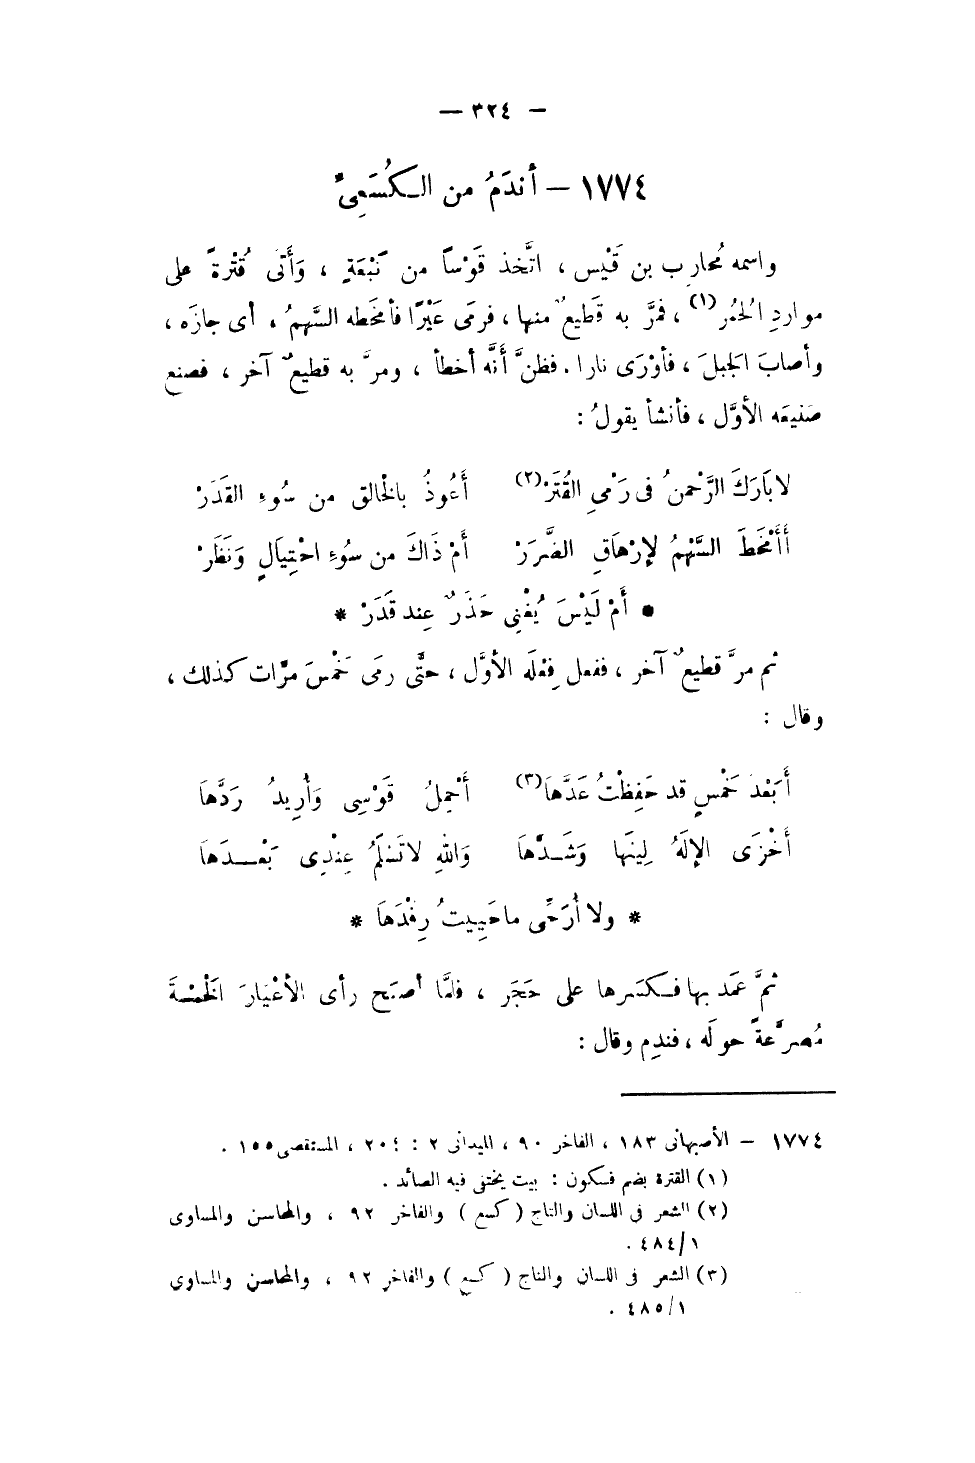 — ٣٢٤ —
١٧٧٤ — أندَمُ من الكُسَعِىِّ
واسمه مُحارِب بن قَيْس ، اتَّخذ قَوْساً من نَبْعَةٍ ، وَأَتَى قُتْرةً على
مواردِ الحُمُر(١) ، فمرَّ به قَطِيعٌ منها ، فرمَى عَيْرًا فأمخَطه السَّهمُ ، أى جازَه ،
وأصابَ الجَبلَ ، فأوْرَى نارا . فظنَّ أنَّه أخطأ ، ومرَّ به قطيعٌ آخر ، فصنع
صَنيعَه الأوَّل ، فأنشأ يقولُ :
لا بَارَكَ الرَّحْمنُ فى رَمْىِ القُتَرْ(٢) أَعُوذُ بالخْالق من سُوءِ القَدَرْ
أَأَمْخَطَ السَّهْمُ لإِرْهَاقِ الضَّرَرْ أَمْ ذَاكَ من سُوءِ احْتِيَالٍ وَنَظَرْ
* أَمْ لَيْسَ يُغْنِى حَذَرٌ عِند قَدَرْ *
ثم مرَّ قطيعٌ آخر ، ففعل فِعْلَه الأوَّل ، حتَّى رمَى خَمْسَ مرَّات كذلك ،
وقال :
أَبَعْدَ خَمْسٍ قد حَفِظْتُ عَدَّهَا(٣) أَحْمِلُ قَوْسِى وَأُرِيدُ رَدَّهَا
أَخْزَى الإِلَهُ لِينَها وَشَدَّهَا وَاللهِ لا تَسْلَمُ عِنْدِى بَعْدَهَا
* ولا أُرَجِّى ما حَيِيتُ رِفْدَهَا *
ثمَّ عَمَد بها فكسَرها على حَجَر ، فلمَّا أصبَح رأى الأعْيارَ الخْمْسةَ
مُصرَّعةً حولَه ، فندِم وقال :
١٧٧٤ — الأصبهانى ١٨٣ ، الفاخر ٩٠ ، الميدانى ٢ : ٢٠٤ ، المستقصى ١٥٥ .
(١) القترة بضم فسكون : بيت يختفى فيه الصائد .
(٢) الشعر فى اللسان والتاج ( كسع ) والفاخر ٩٢ ، والمحاسن والمساوى
١/٤٨٤ .
(٣) الشعر فى اللسان والتاج ( كسع ) والفاخر ٩٢ ، والمحاسن والمساوى
١/٤٨٥ .